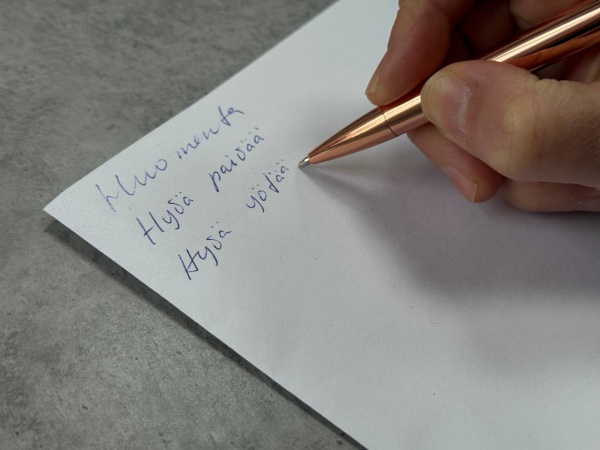 Huomenta
Hyvä päivää
Hyvä yötää